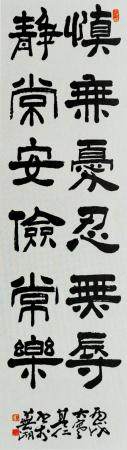 慎無憂忍無辱
靜常安儉常樂